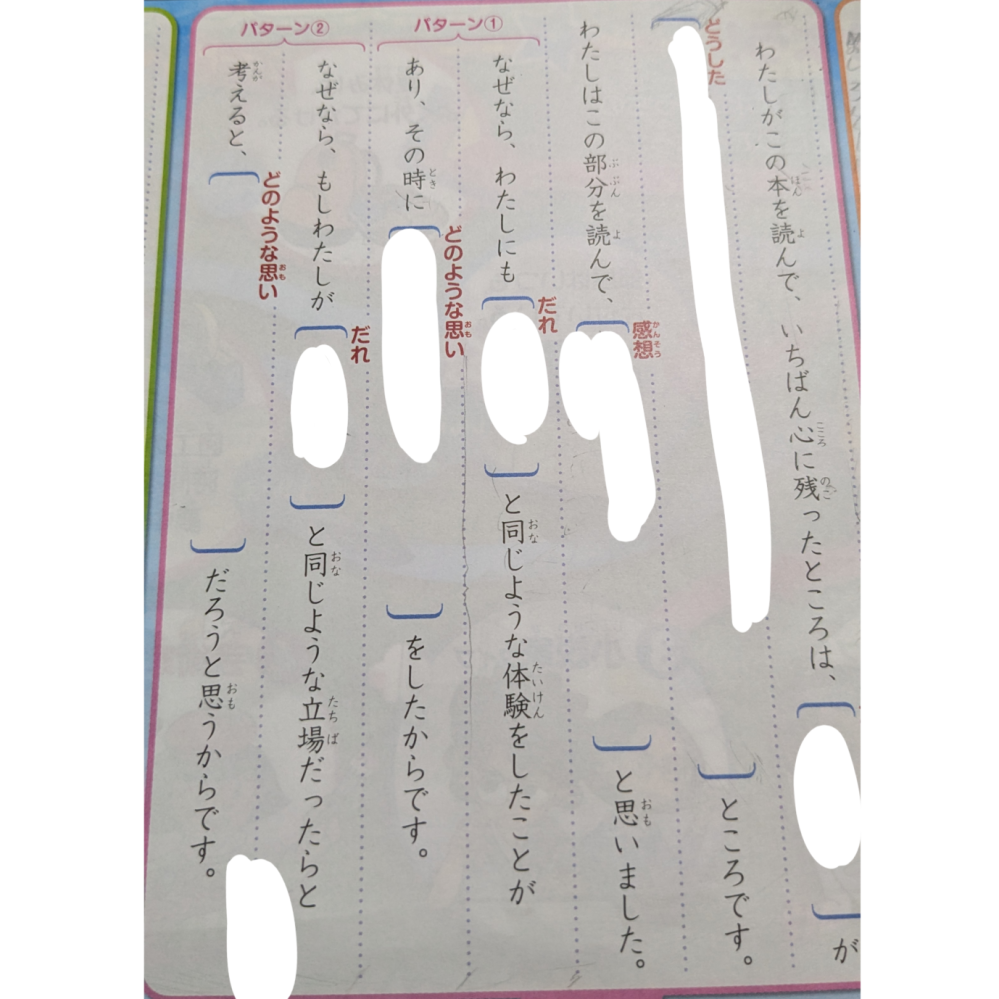 わたしがこの本を読んで、いちばん心に残ったところは、[　]が
どうした
[　]ところです。
わたしはこの部分を読んで、[　]と思いました。
感想
パターン①
なぜなら、わたしにも[　]と同じような体験をしたことが
だれ
あり、その時に[　]をしたからです。
どのような思い
パターン②
なぜなら、もしわたしが[　]と同じような立場だったらと
だれ
考えると、[　]だろうと思うからです。
どのような思い